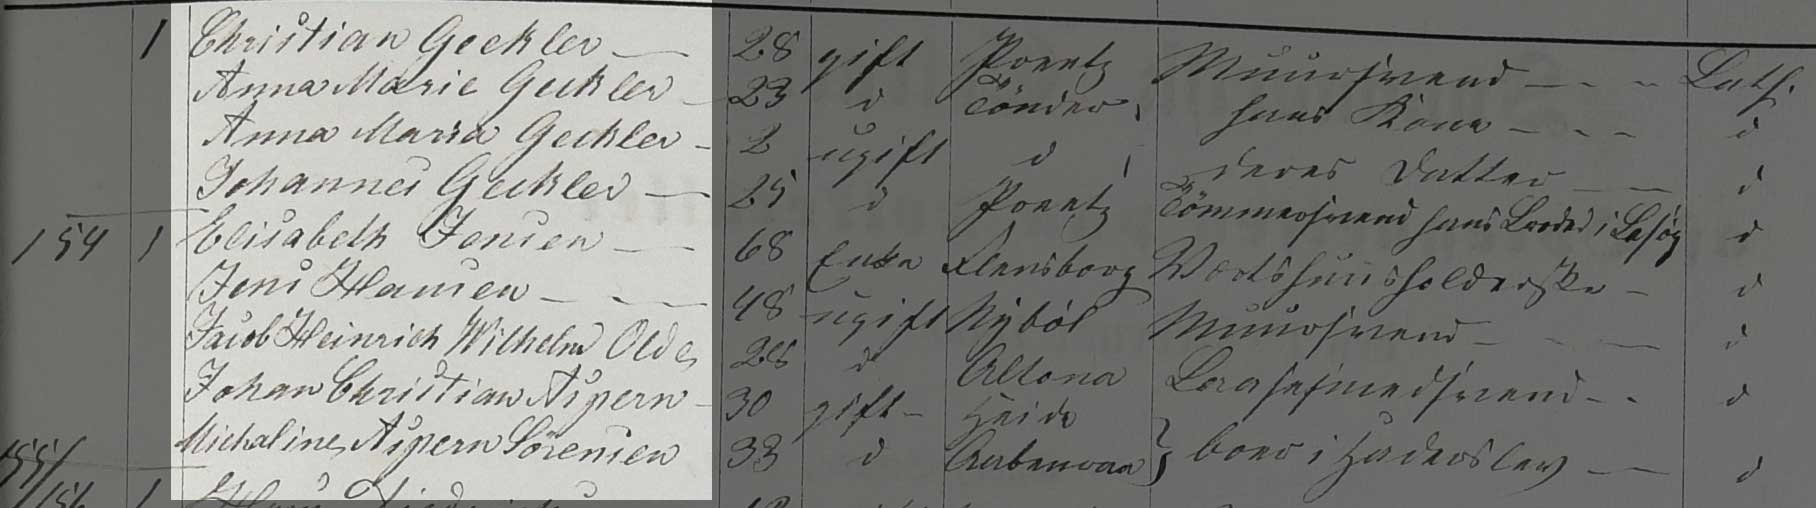 1 Christian Geckler 28 gift Preetz Muursvend Luth.
Anna Marie Geckler 23 d Tönder hans Kone d
Anna Maria Geckler 2 ugift d deres Datter d
Johannes Geckler 25 d Preetz Tömmersvend hans Broder i Besøg d
154 1 Elisabeth Jensen 68 Enke Flensborg Værtshuusholderske d
Jens Hansen 48 ugift Nÿböl Muursvend d
Jacob Heinrich Wilhelm Olde 28 d Altona d
Johan Christian Aspern 30 gift Heide
Michaline Aspern Sörensen 33 d Aabenraa } boer i Haderslev d
155/
156 1